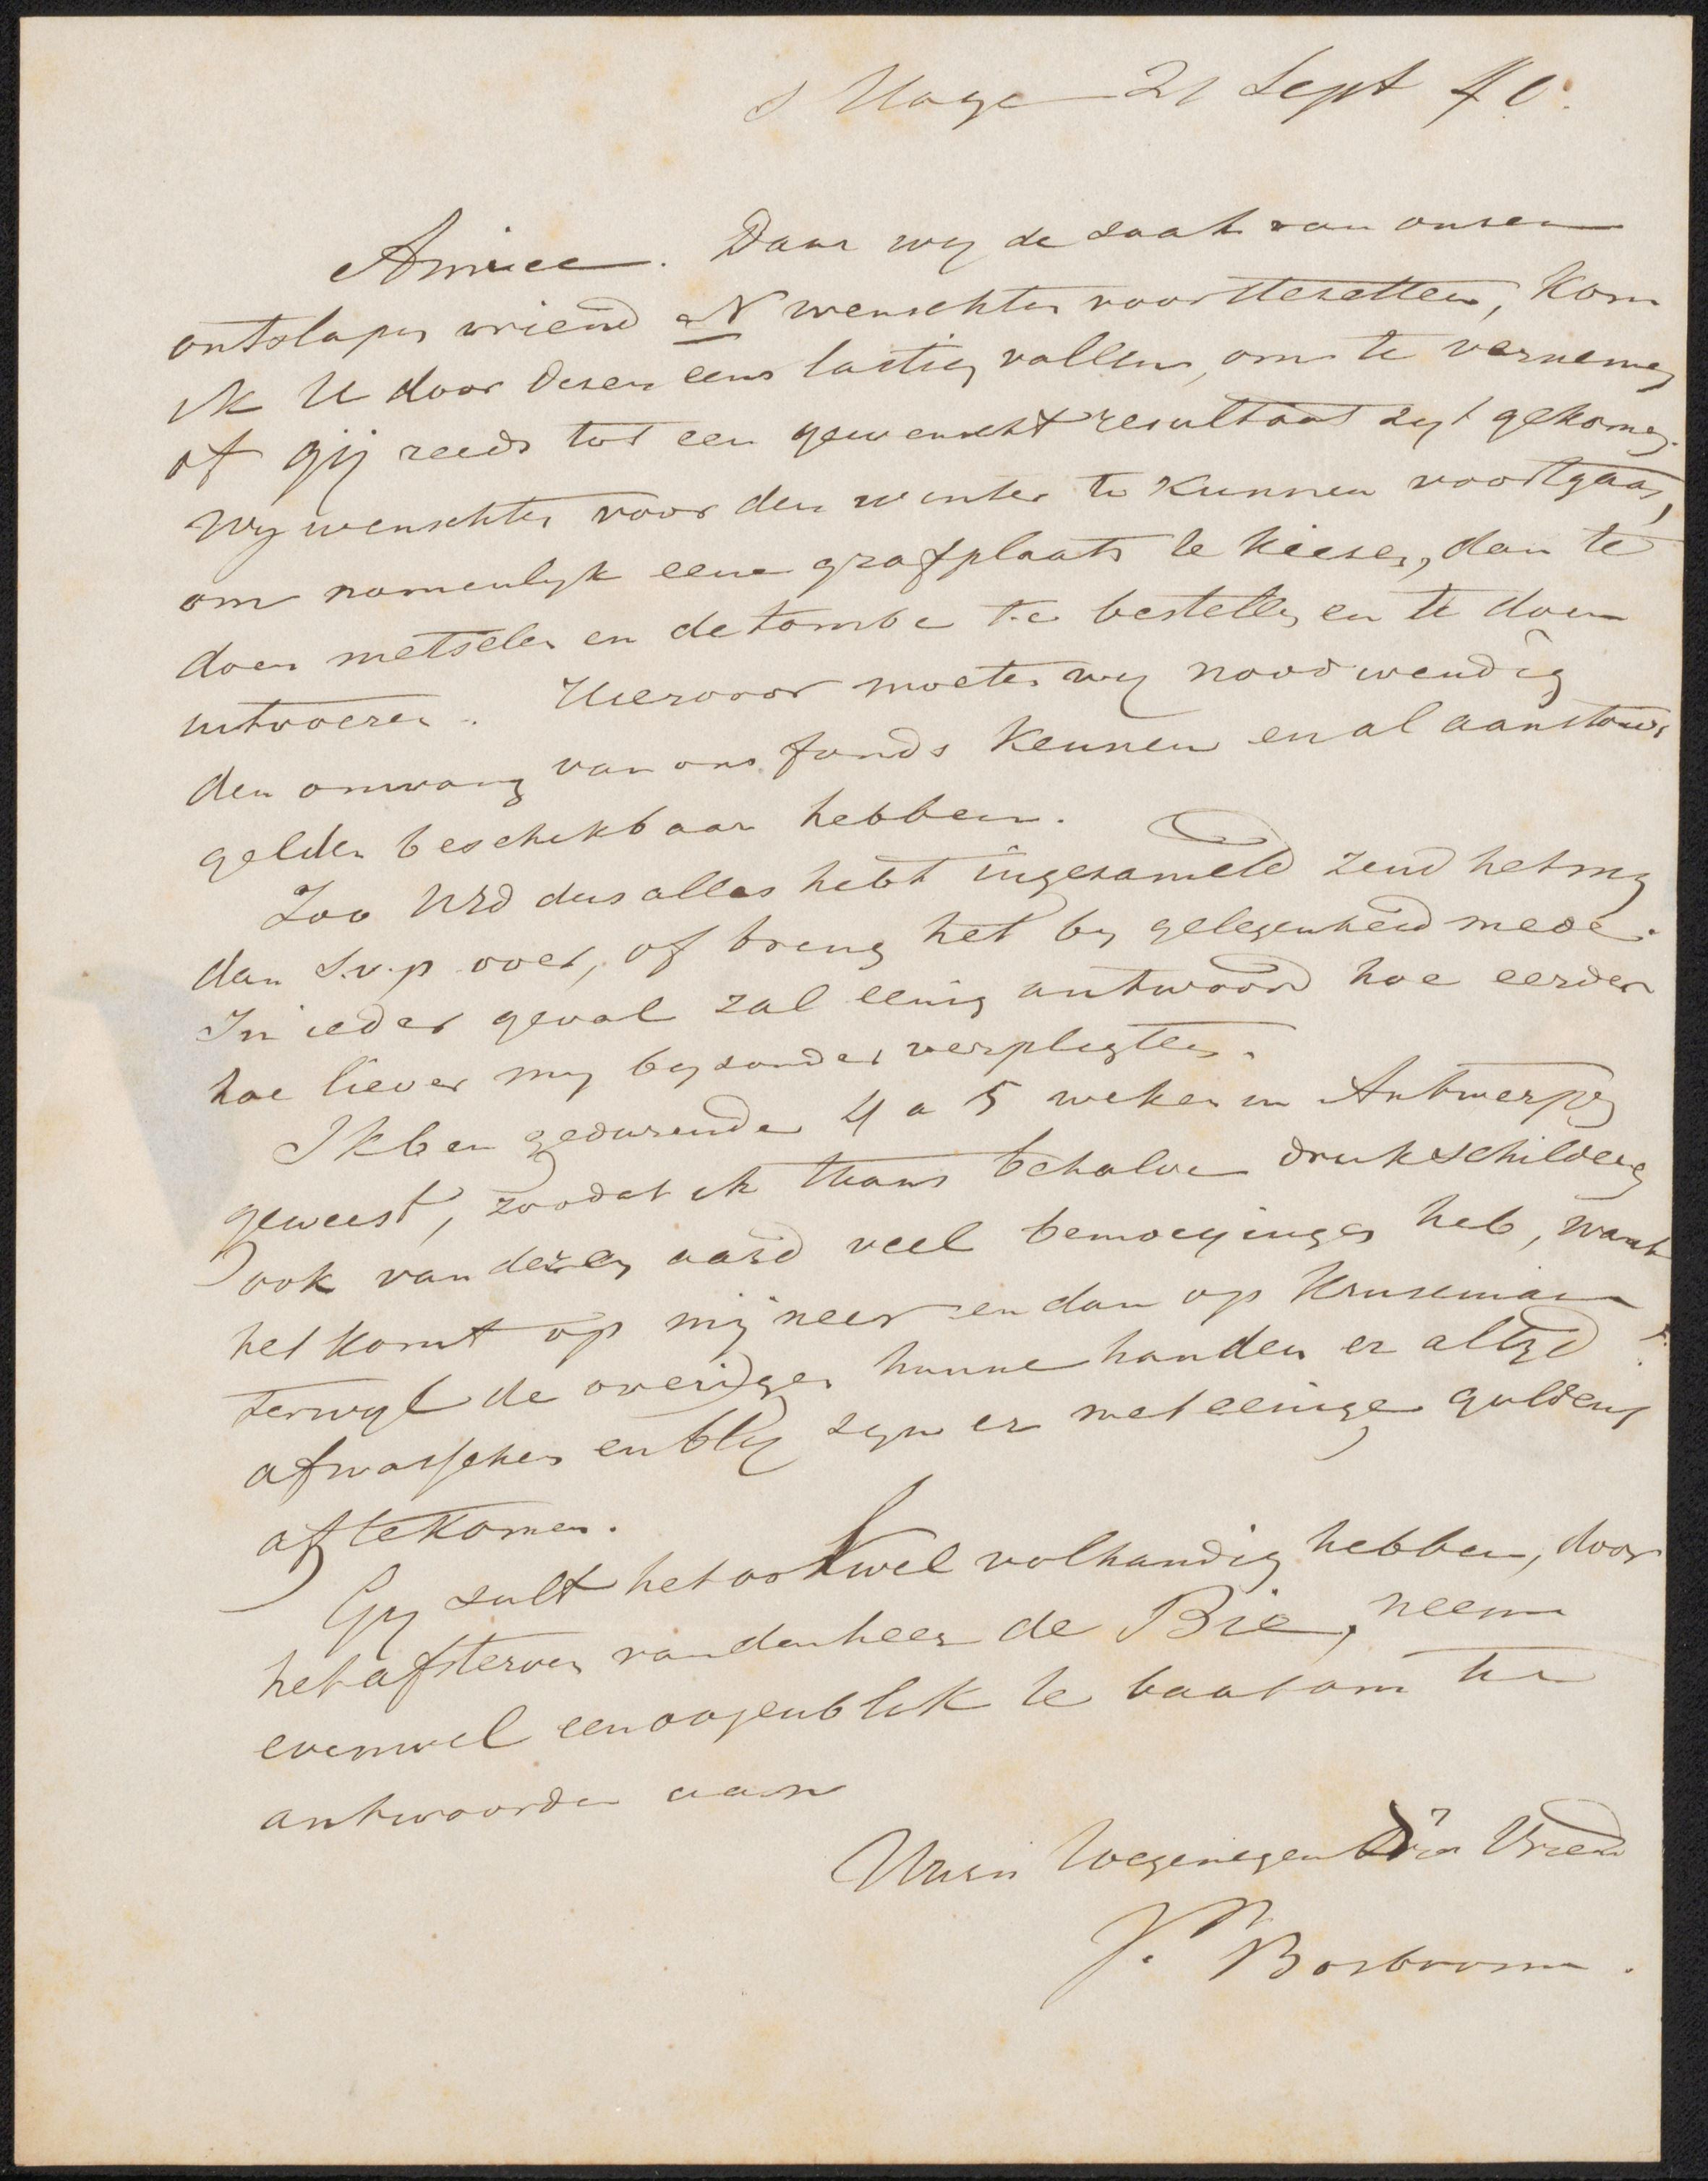 s Hage 21 Sept 40.
Amice. Daar wij de zaak van onzen
ontslapen vriend N wenschten voorttezetten, kom
ik U door dezen eens lastig vallen, om te vernemen
of gij reeds tot een gewenscht resultaat zijt gekomen.
Wij wenschten voor den winter te kunnen voortgaan,
om namenlyk eene grafplaats te kiezen, dan te
doen metselen en de tombe te bestellen en te doen
uitvoeren. Hiervoor moeten wij noodwendig
den omvang van ons fonds kennen en al aanstonds
gelden beschikbaar hebben.
Zoo UEd dus alles hebt ingezameld zend het my
dan s.v.p over, of breng het by gelegenheid mede.
In ieder geval zal eenig antwoord hoe eerder
hoe liever my byzonder verpligten.
Ik ben gedurende 4 a 5 weken in Antwerpen
geweest, zoodat ik thans behalve druk schilderen
ook van dezen aard veel bemoeyingen heb, want
het komt op mij neer en dan op Kruseman
terwyl de overigen hunne handen er altyd
afwasschen en bly zyn er met eenige guldens
aftekomen.
Gy zult het ook wel volhandig hebben, door
het afsterven van den heer de Bie, neem
evenwel een oogenblik te baat om te
antwoorden aan
Uwen toegenegen Vriend
J. Bosboom.